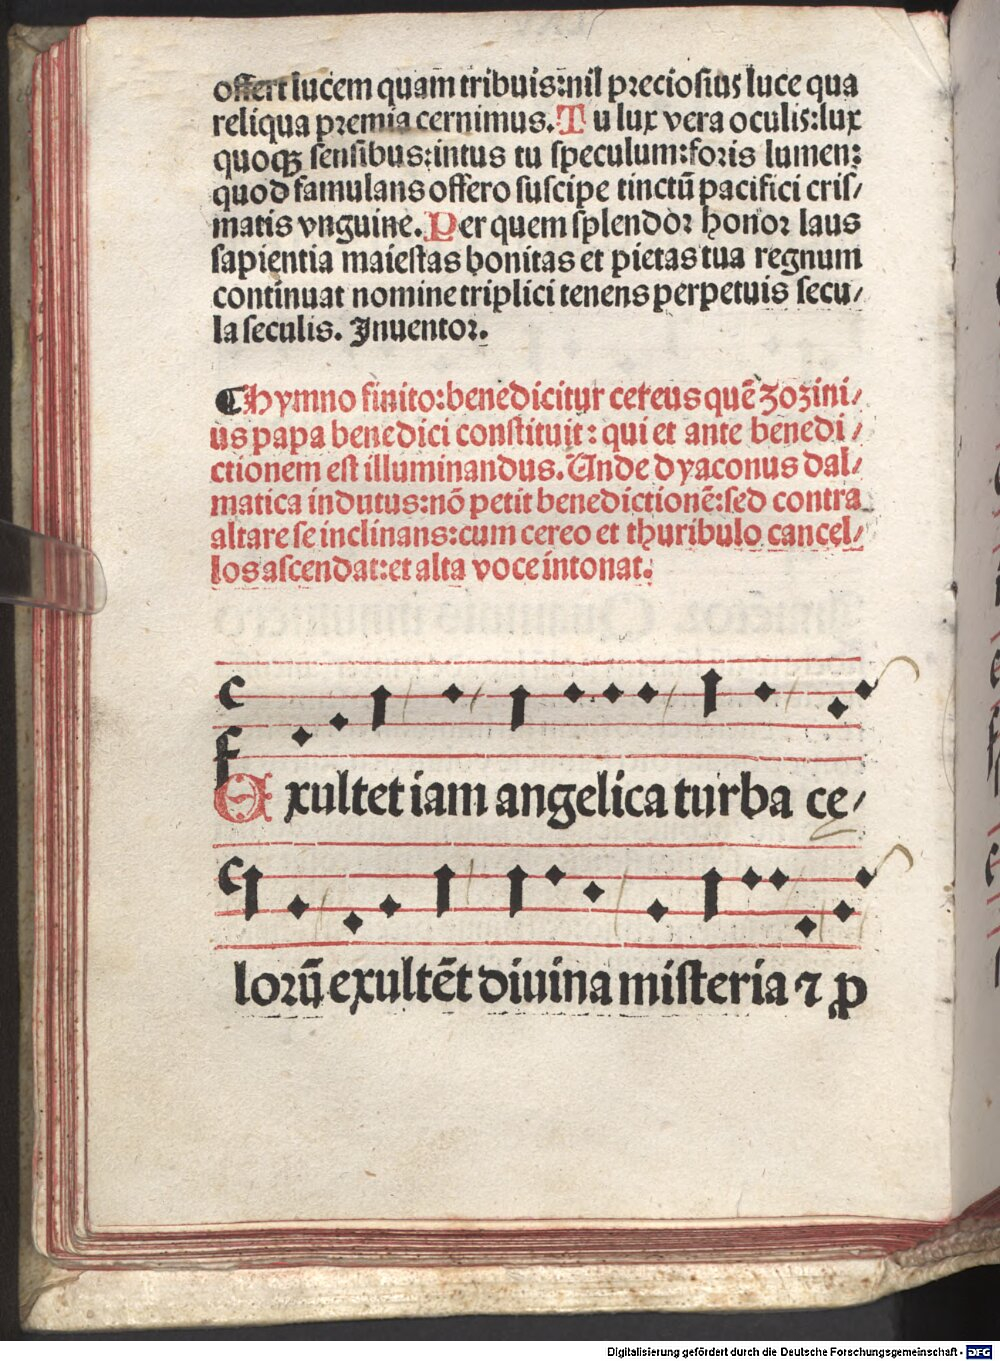 offert lucem quam tribuis:nil preciosius luce qua
reliqua premia cernimus. Tu lux vera oculis:lux
quoqꝫ sensibus:intus tu speculum:foris lumen:
quod famulans offero suscipe tinctū pacifici cris/
matis vnguine. Per quem splendor honor laus
sapientia maiestas bonitas et pietas tua regnum
continuat nomine triplici tenens perpetuis secu/
la seculis. Inuentor.
¶ Hymno finito:benedicitur cereus quē zozini/
us papa benedici constituit: qui et ante benedi/
ctionem est illuminandus. Unde dyaconus dal/
matica indutus:nō petit benedictionē:sed contra
altare se inclinans:cum cereo et thuribulo cancel/
los ascendat:et alta voce intonat.
c
f
Exultet iam angelica turba ce/
c
lorū exultēt diuina misteria ⁊ p
Digitalisierung gefördert durch die Deutsche Forschungsgemeinschaft - DFG